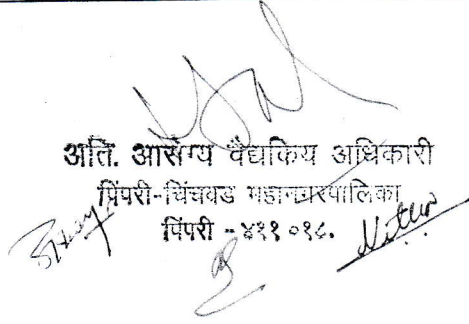 अति. आरोग्य वैद्यकिय अधिकारी
पिंपरी-चिंचवड महानगरपालिका
पिंपरी - ४११ ०१८.